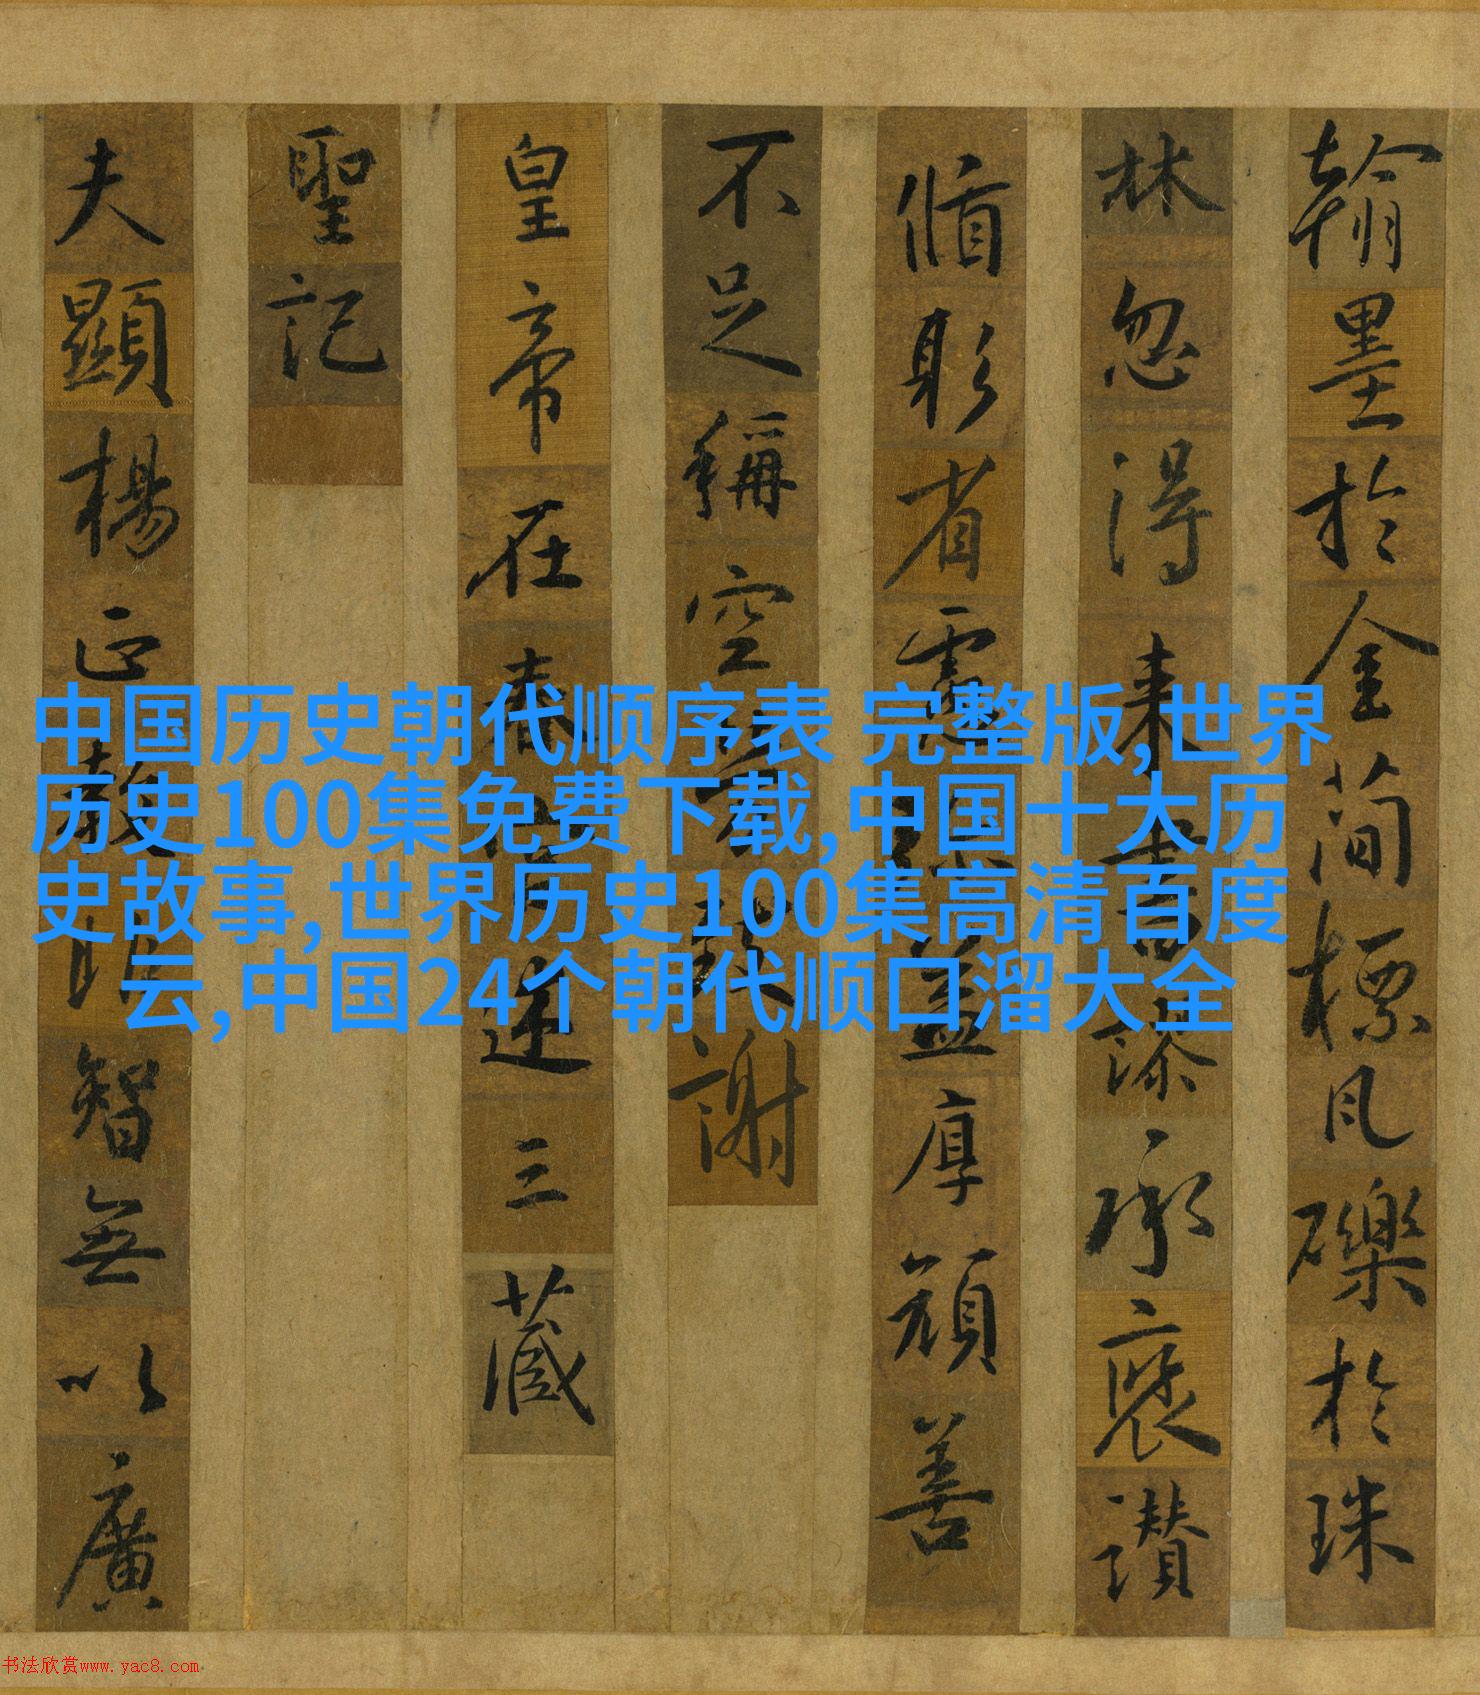 翰墨於金简標风礫於珠
林忽得来書漆承褒讃
脩躬省慮
益厚頑善
不足稱空
謝
皇帝在春
述三藏
聖記
夫顯楊正
智無以廣
中国历史朝代顺序表 完整版,世界
历史100集免费下载,中国十大历
史故事,世界历史100集高清百度
云,中国24个朝代顺口溜大全
书法欣赏www.yac8.com